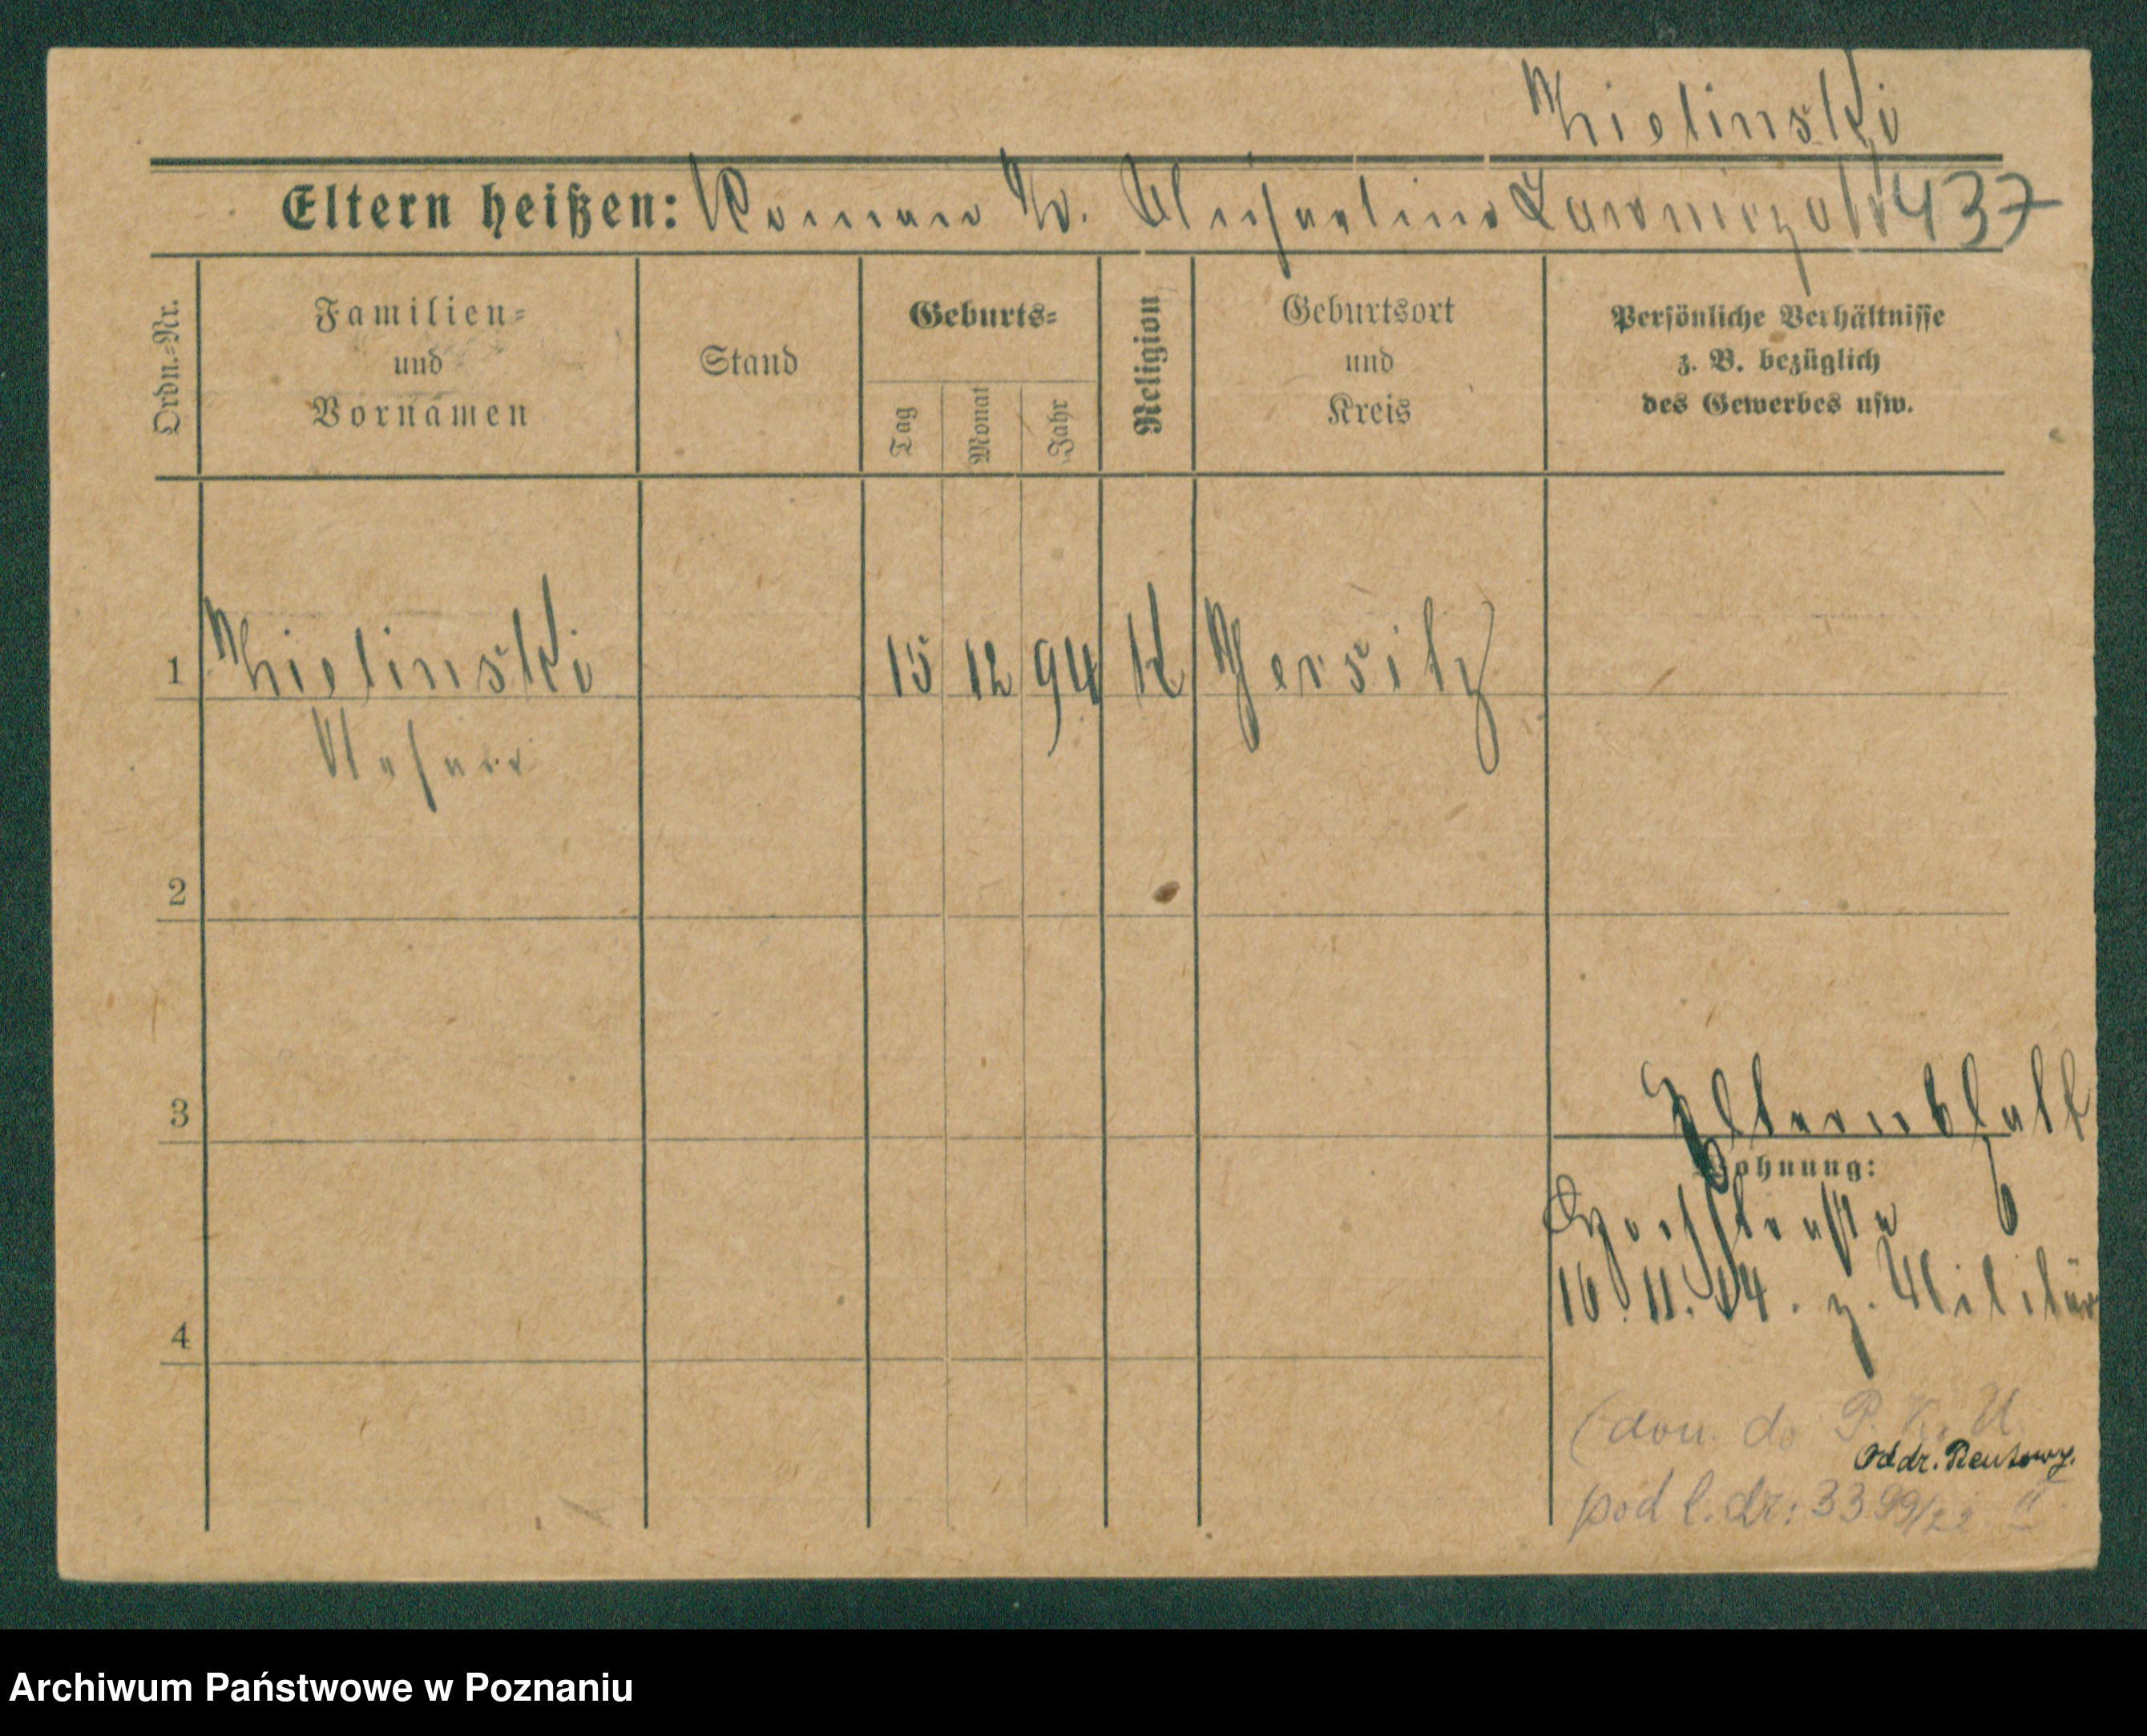 Zielinski
Eltern heißen: Roman Z. Michaelina Lawniczak 437
Ordn.-Nr.
Familien-
und
Vornamen
Stand
Geburts-
Tag
Monat
Jahr
Religion
Geburtsort
und
Kreis
Persönliche Verhältnisse
z. B. bezüglich
des Gewerbes usw.
1 Zielinski 15 12 94 K Jersitz
2
3
Wohnung:
16. 11. 14. z. Militär
4
(don. do P. K. U.
Oddz. Rentowy.
pod l. dz: 3399/22 II
Archiwum Państwowe w Poznaniu